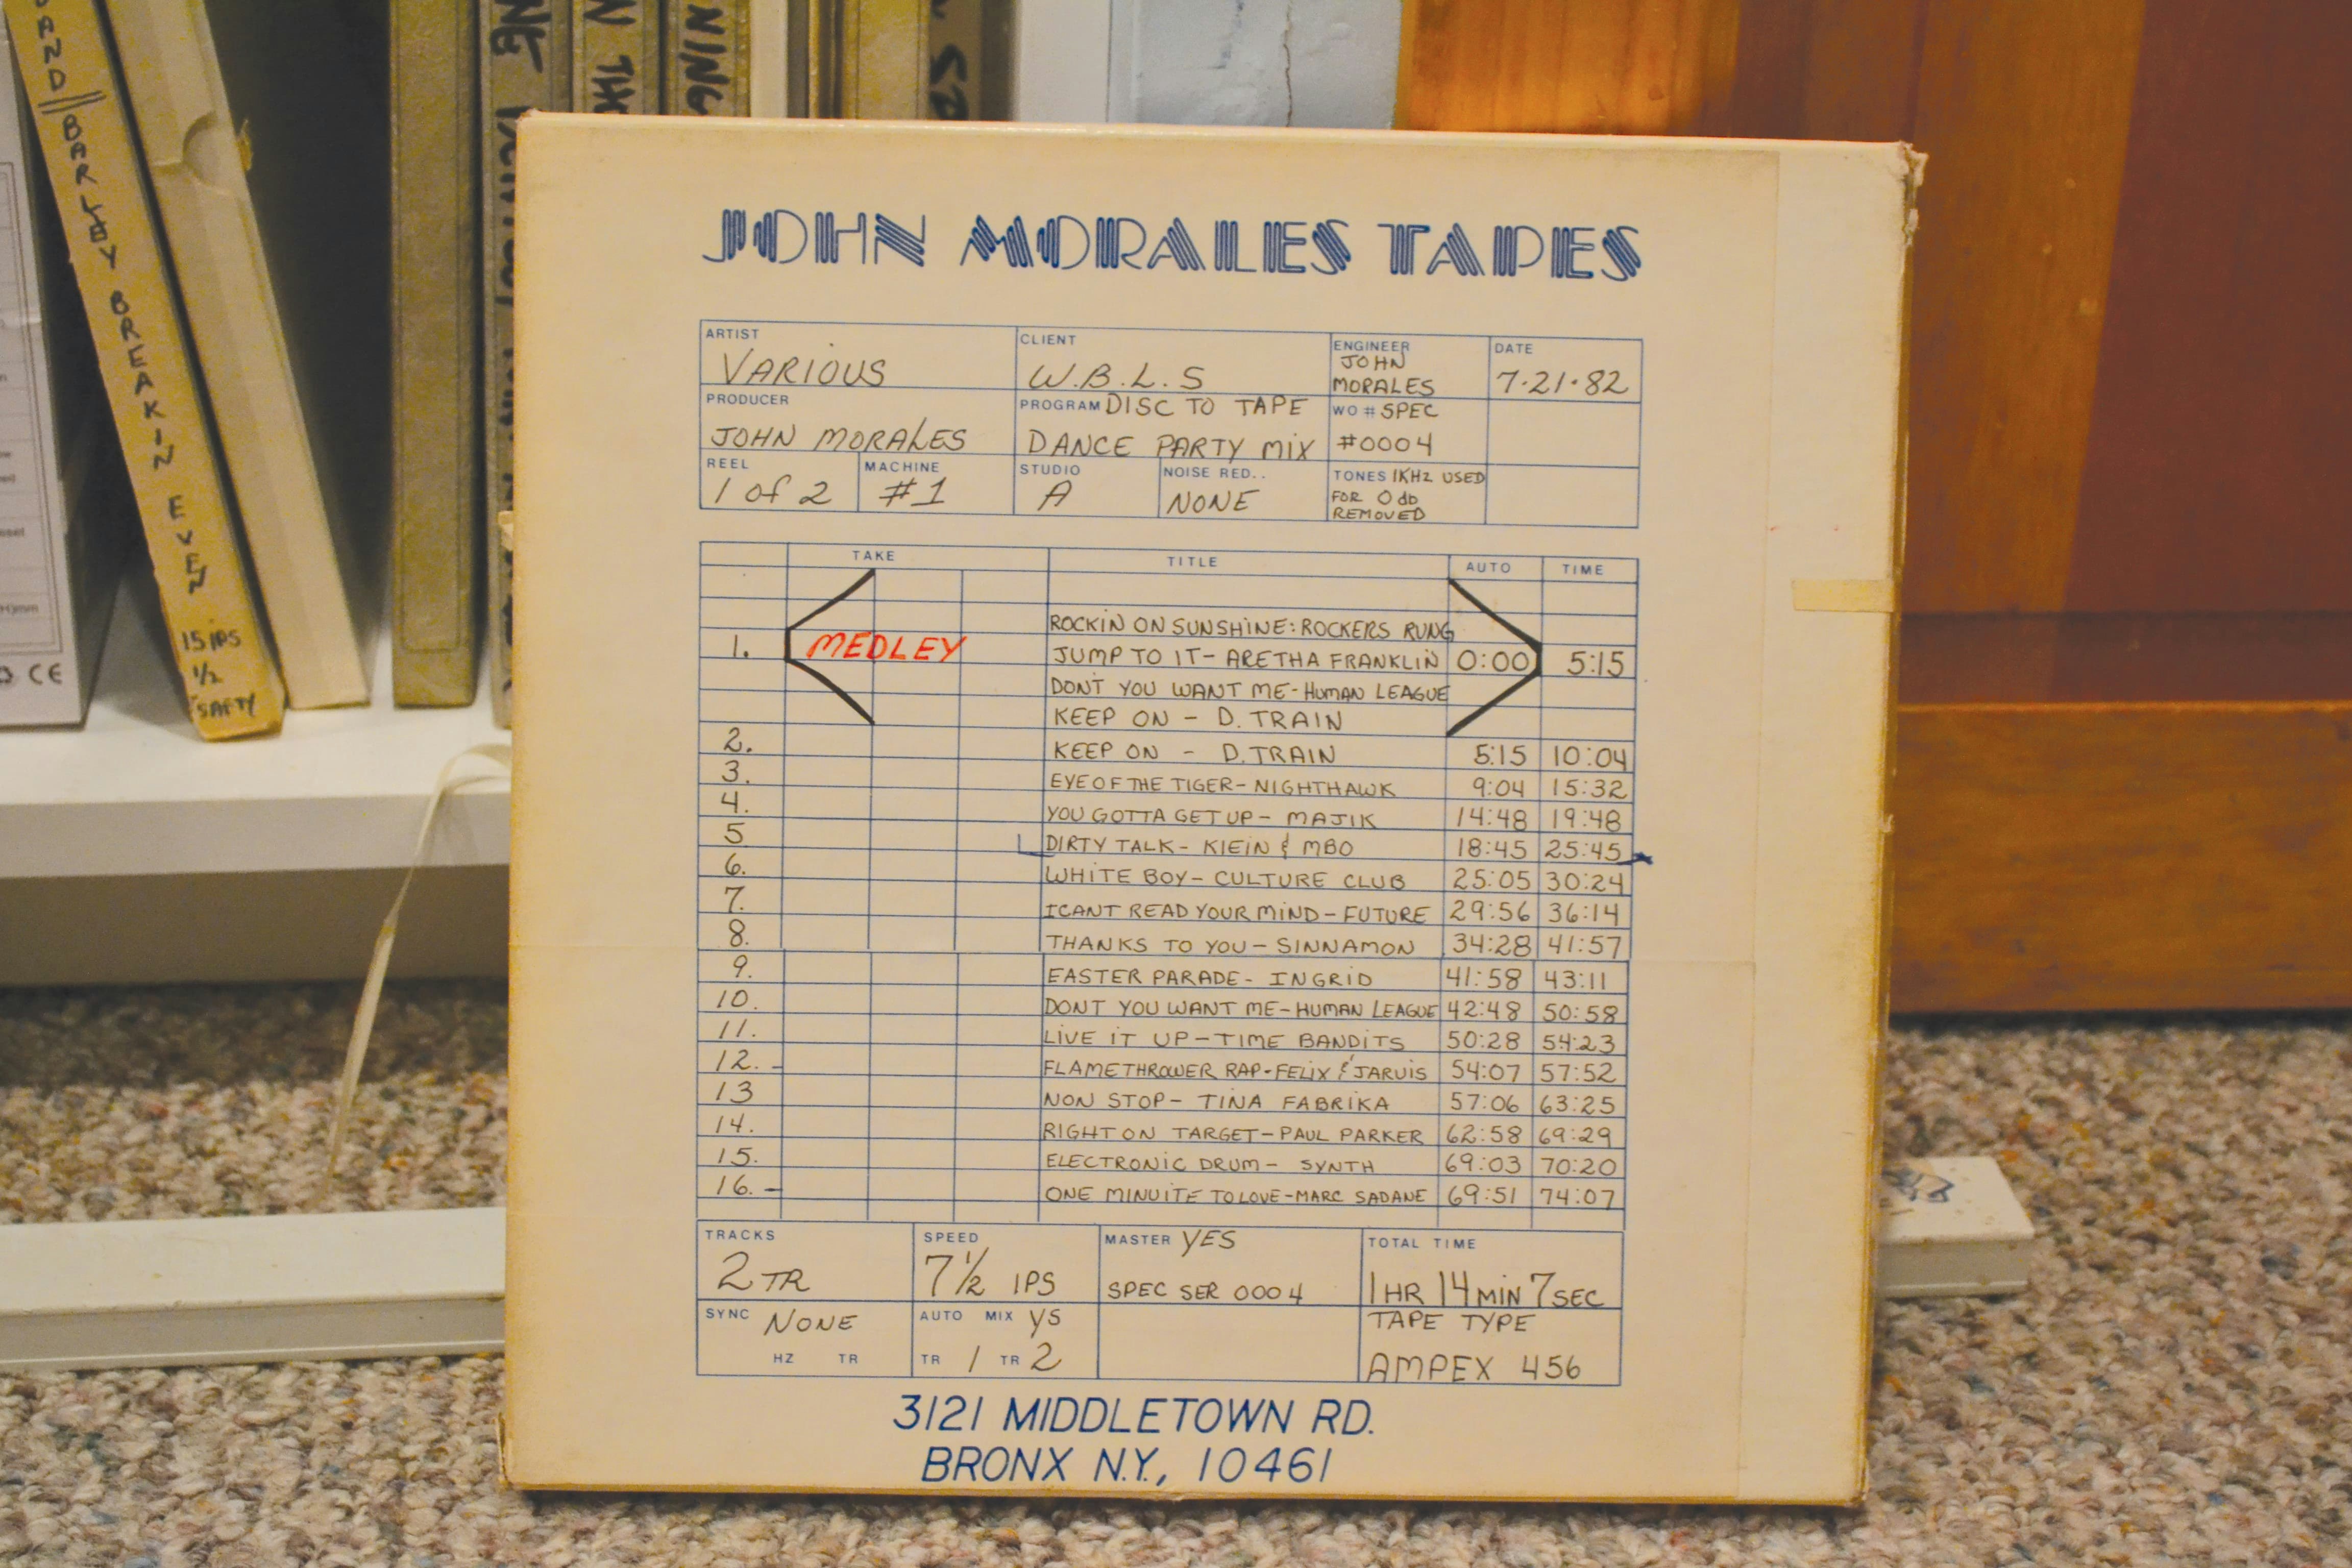 AND // BARLEY BREAKIN EVEN
15 IPS
1/2
SAFTY
CE
JOHN MORALES TAPES
ARTIST VARIOUS CLIENT W.B.L.S ENGINEER JOHN MORALES DATE 7·21·82
PRODUCER JOHN MORALES PROGRAM DISC TO TAPE DANCE PARTY MIX WO # SPEC #0004
REEL 1 of 2 MACHINE #1 STUDIO A NOISE RED.. NONE TONES 1KHz USED FOR 0 db REMOVED
TAKE TITLE AUTO TIME
ROCKIN ON SUNSHINE: ROCKERS RUNG
1. MEDLEY JUMP TO IT - ARETHA FRANKLIN 0:00 5:15
DONT YOU WANT ME - HUMAN LEAGUE
KEEP ON - D. TRAIN
2. KEEP ON - D. TRAIN 5:15 10:04
3. EYE OF THE TIGER - NIGHTHAWK 9:04 15:32
4. YOU GOTTA GET UP - MAJIK 14:48 19:48
5 DIRTY TALK - KlEIN & MBO 18:45 25:45
6. WHITE BOY - CULTURE CLUB 25:05 30:24
7. I CANT READ YOUR MIND - FUTURE 29:56 36:14
8. THANKS TO YOU - SINNAMON 34:28 41:57
9. EASTER PARADE - INGRID 41:58 43:11
10. DONT YOU WANT ME - HUMAN LEAGUE 42:48 50:58
11. LIVE IT UP - TIME BANDITS 50:28 54:23
12. - FLAMETHROWER RAP - FELIX & JARVIS 54:07 57:52
13 NON STOP - TINA FABRIKA 57:06 63:25
14. RIGHT ON TARGET - PAUL PARKER 62:58 69:29
15. ELECTRONIC DRUM - SYNTH 69:03 70:20
16. - ONE MINUITE TO LOVE - MARC SADANE 69:51 74:07
TRACKS 2 TR SPEED 7 1/2 IPS MASTER YES SPEC SER 0004 TOTAL TIME 1 HR 14 MIN 7 SEC
SYNC NONE HZ TR AUTO MIX YS TR 1 TR 2 TAPE TYPE AMPEX 456
3121 MIDDLETOWN RD.
BRONX N.Y., 10461